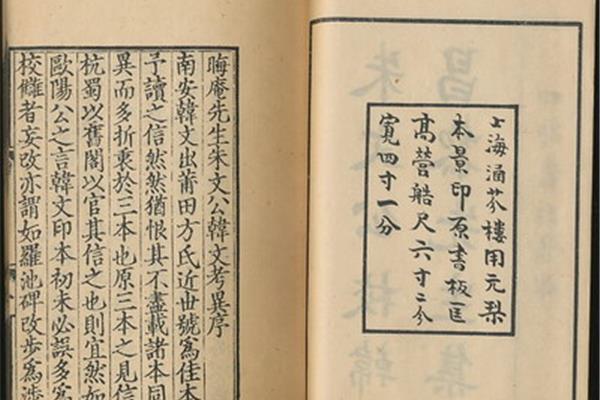 上海涵芬樓用元槧
本景印原書板匡
高營造尺六寸二分
寬四寸一分
晦庵先生朱文公韓文考異序
南安韓文出莆田方氏近世號為佳本
予讀之信然然猶恨其不盡載諸本同
異而多折衷於三本也原三本之見信
杭蜀以舊閣以官其信之也則宜然如
歐陽公之言韓文印本初未必誤多為
校讎者妄改亦謂如羅池碑改步為涉